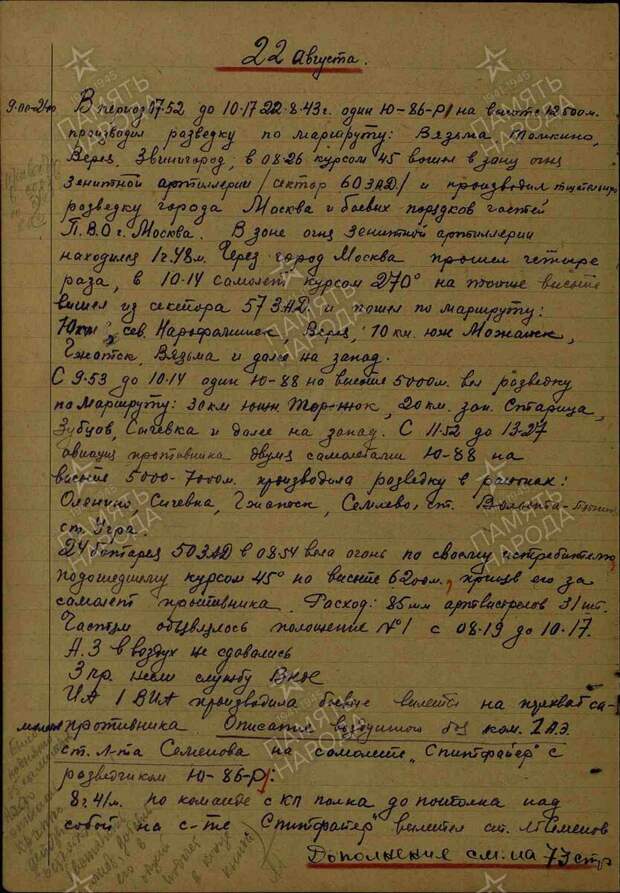 22 августа.
9.00-24.00 В период 07.52 до 10.17 22.8.43г. один Ю-86-Р1 на высоте 12500м.
производил разведку по маршруту: Вязьма Темкино,
Верея, Звенигород, в 08-26 курсом 45 вошел в зону огня
зенитной артиллерии /сектор 60ЗАД/ и производил тщательную
разведку города Москва и боевых порядков частей
П.В.О г. Москва. В зоне огня зенитной артиллерии
находился 1ч.48м. Через город Москва прошел четыре
раза, в 10.14 самолет курсом 270° на той же высоте
вышел из сектора 57ЗАД и пошел по маршруту:
10км. сев. Нарофоминск, Верея, 10 км. юж Можайск,
Гжатск, Вязьма и далее на запад.
С 9.53 до 10.14 один Ю-88 на высоте 5000м. вел разведку
по маршруту: 30км южн Торжок, 20км. зап. Старица,
Зубцов, Сычевка и далее на запад. С 11.52 до 13-27
авиация противника двумя самолетами Ю-88 на
высоте 5000-7000м. производила разведку в районах:
Оленино, Сычевка, Гжатск, Семлево, ст.
ст. Угра.
24 батарея 50ЗАД в 08.54 вела огонь по своему истребителю,
подошедшему курсом 45° на высоте 6200м., приняв его за
самолет противника. Расход: 85мм артвыстрелов 31 шт.
Частям объявлялось положение №1 с 08-19 до 10.17.
А.З в воздух не сдавались
3 пр. несли службу Внос
ИА 1 ВИА производила боевые вылеты на перехват са-
молета противника. Описание воздушного боя ком. 1 А.Э.
ст. л-та Семенова на самолете „Спитфайер" с
разведчиком Ю-86-Р1:
8ч.41м. по команде с КП полка до потолка над
собой на с-те „Спитфайер" вылетел ст. л. Семенов
Дополнение см. на 73 стр
ПАМЯТЬ НАРОДА